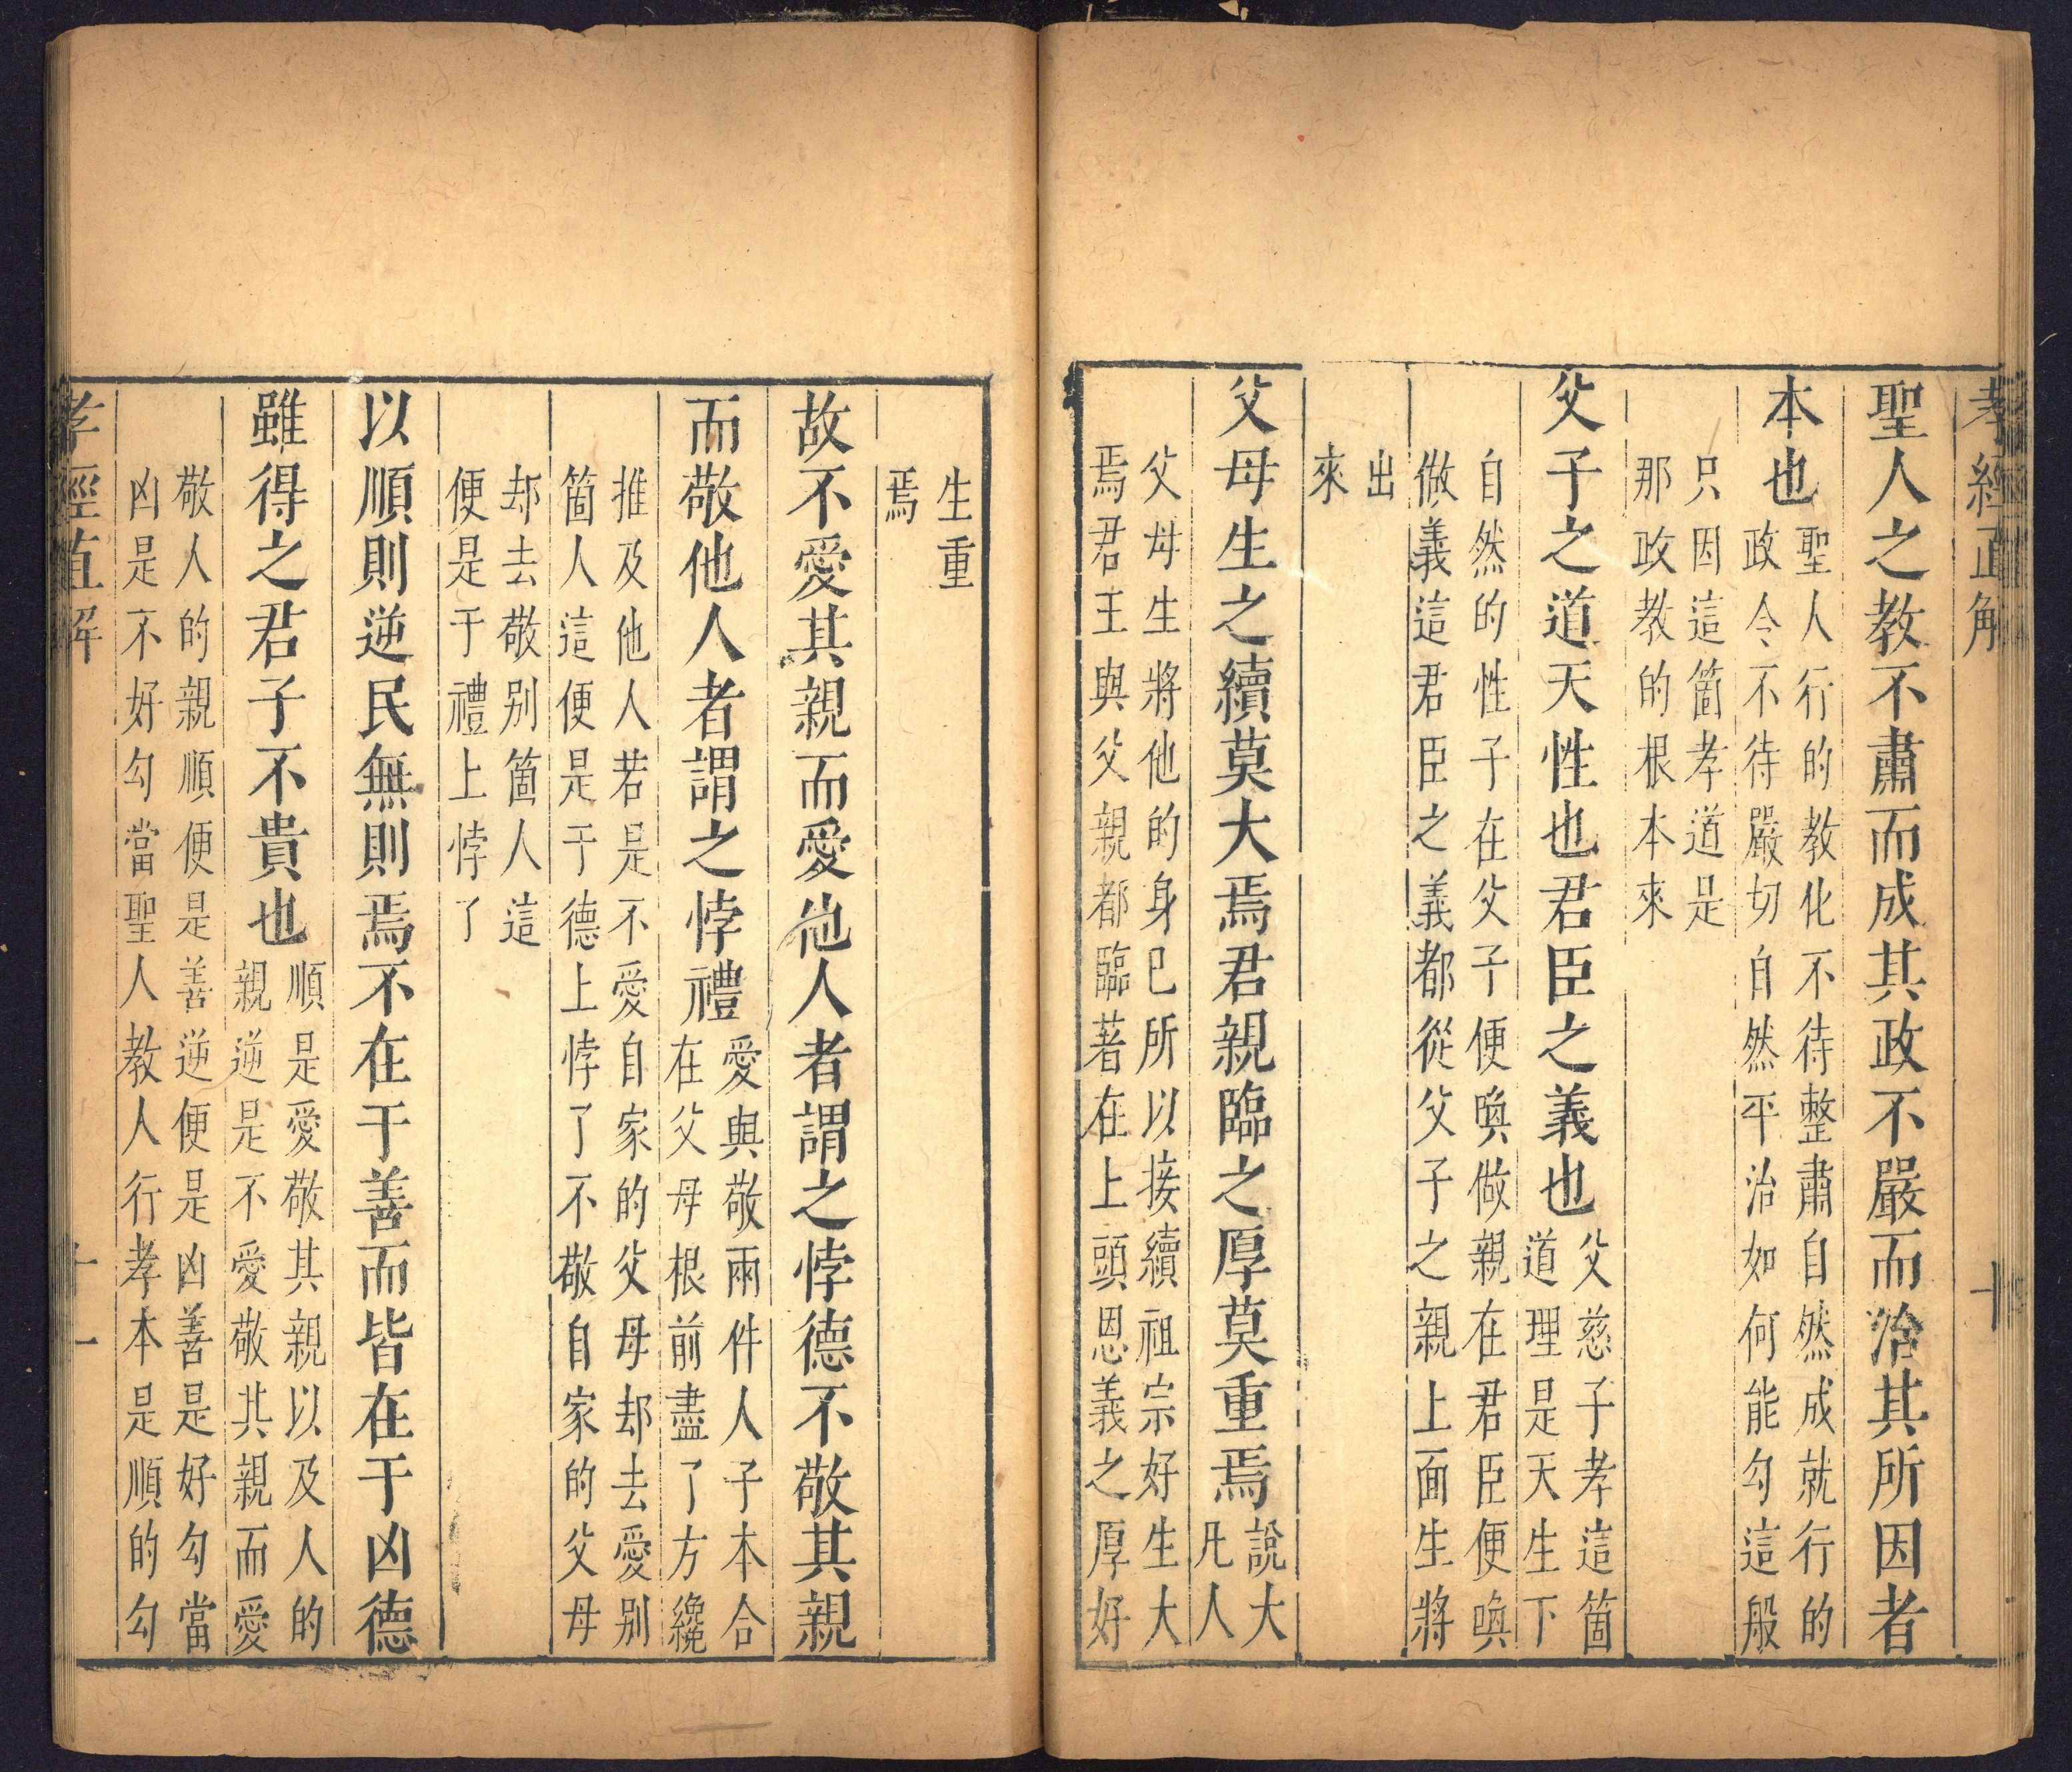 孝經直解
十
聖人之教不肅而成其政不嚴而治其所因者
本也
聖人行的教化不待整肅自然成就行的
政令不待嚴切自然平治如何能勾這般
只因這箇孝道是
那政教的根本來
父子之道天性也君臣之義也
父慈子孝這箇
道理是天生下
自然的性子在父子便喚做親在君臣便喚
做義這君臣之義都從父子之親上面生將
出
來
父母生之續莫大焉君親臨之厚莫重焉
說大
凡人
父母生將他的身己所以接續祖宗好生大
焉君王與父親都臨著在上頭恩義之厚好
生重
焉
故不愛其親而愛他人者謂之悖德不敬其親
而敬他人者謂之悖禮
愛與敬兩件人子本合
在父母根前盡了方纔
推及他人若是不愛自家的父母却去愛别
箇人這便是于德上悖了不敬自家的父母
却去敬别箇人這
便是于禮上悖了
以順則逆民無則焉不在于善而皆在于凶德
雖得之君子不貴也
順是愛敬其親以及人的
親逆是不愛敬其親而愛
敬人的親順便是善逆便是凶善是好勾當
凶是不好勾當聖人教人行孝本是順的勾
孝經直解
十一